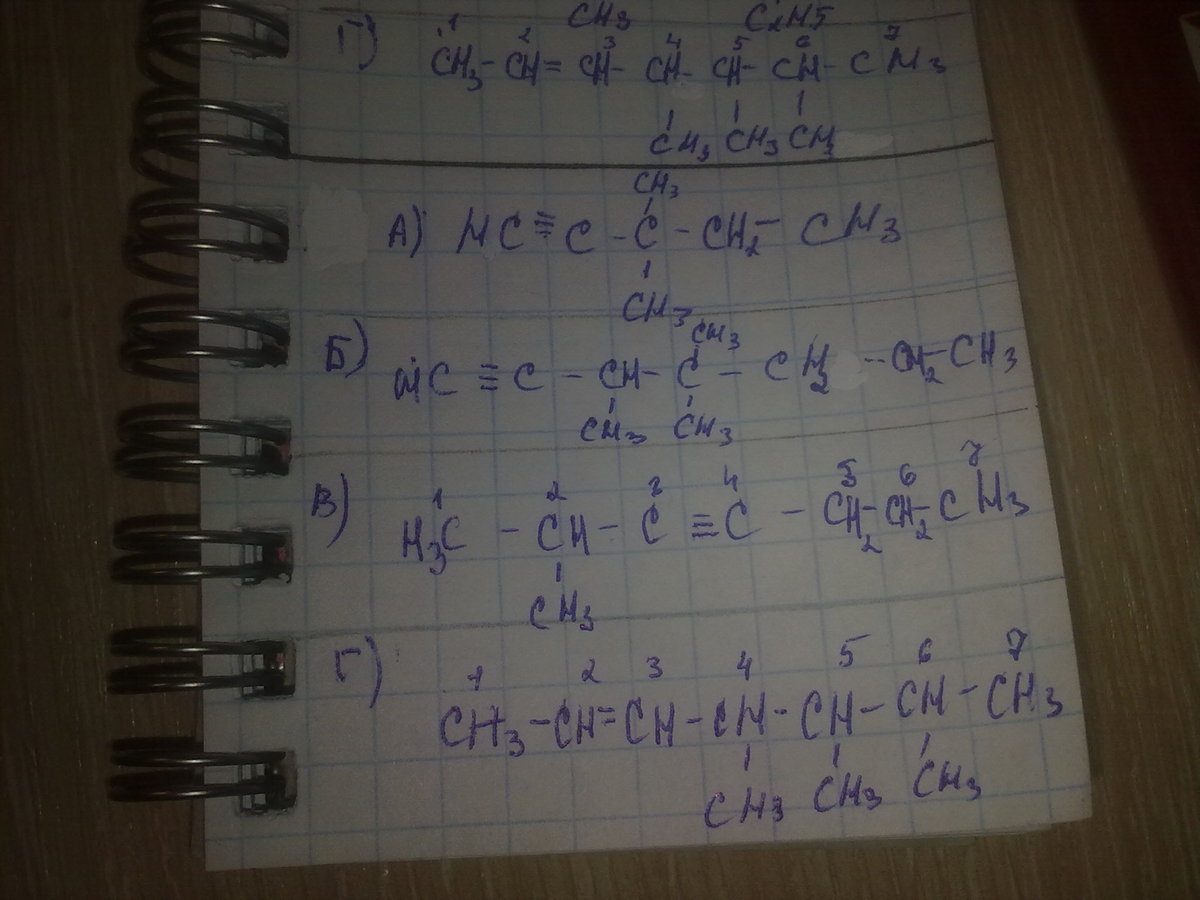 CH3 C2H5
1 2 3 4 5 6 7
Г) CH3 - CH = CH - CH - CH - CH - CH3
CH3 CH3 CH3
CH3
А) HC ≡ C - C - CH2 - CH3
CH3
CH3
Б) HC ≡ C - CH - C - CH2 - CH2 - CH3
CH3 CH3
1 2 3 4 5 6 7
В) H3C - CH - C ≡ C - CH2 - CH2 - CH3
CH3
1 2 3 4 5 6 7
Г) CH3 - CH = CH - CH - CH - CH - CH3
CH3 CH3 CH3